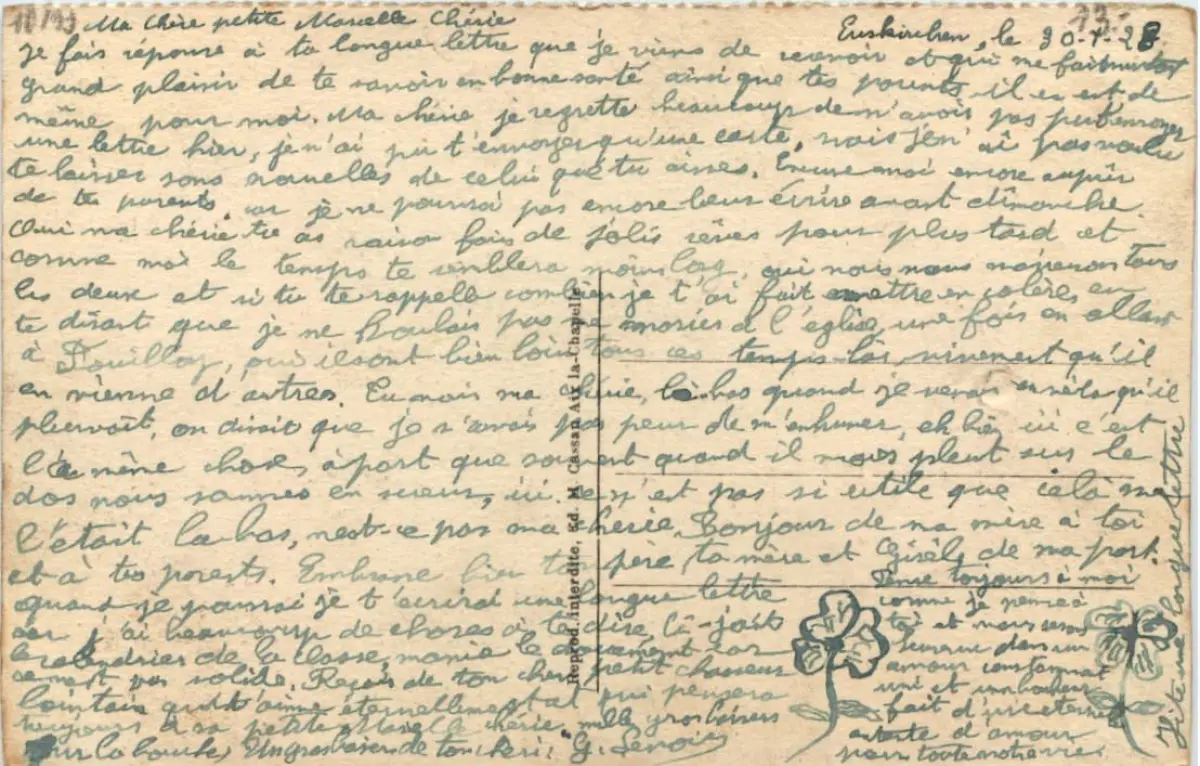 Ma Chère petite Marcelle Chérie
Euskirchen, le 30-1-28
Je fais réponse à ta longue lettre que je viens de recevoir et qui me fait
grand plaisir de te savoir en bonne santé ainsi que tes parents il en est de
même pour moi. Ma chérie je regrette beaucoup de n'avoir pas pu t'envoyer
une lettre hier, je n'ai pu t'envoyer qu'une carte, mais j'en ai pas voulu
te laisser sans nouvelles de celui que tu aimes. encore auprès
de tes parents car je ne pourrai pas encore leur écrire avant dimanche.
Oui ma chérie tu as raison fais de jolis rêves pour plus tard et
comme moi le temps te semblera moins long, oui nous nous marierons tous
les deux et si tu te rappelle combien je t'ai fait mettre en colère, en
te disant que je ne voulais pas me marier à l'église, une fois en allant
à Fouilloy, oui ils sont bien loin tous ces temps là, vivement qu'il
en vienne d'autres. Eu mois ma chérie, là-bas quand je venais en vélo qu'il
pleuvait, on dirait que je n'avais pas peur de m'enrhumer, eh bien ici c'est
la même chose, à part que souvent quand il nous pleut sur le
dos nous sommes en sueur, ici ce n'est pas si utile que celà ne
l'était là-bas, n'est-ce pas ma chérie. Bonjour de ma mère à toi
et à tes parents. Embrasse bien ton père ta mère et Gisèle de ma part.
quand je pourrai je t'écrirai une longue lettre
car j'ai beaucoup de choses à te dire, Ci-joint
le calendrier de la classe, manie le doucement car
pas solide. Reçois de ton cher petit chasseur
lointain qui t'aime éternellement et qui pensera
toujours à sa petite Marcelle chérie mille gros baisers
sur la bouche, Un gros baiser de ton chéri. G. Lenoir
Pense toujours à moi
comme je pense à
toi et nous serons
heureux dans un
amour constamment
uni et un bonheur
fait d'une éternelle
entente d'amour
pour toute notre vie.
Vite une longue lettre
Reprod. interdite, Ed. M. Cassan Aix-la-Chapelle